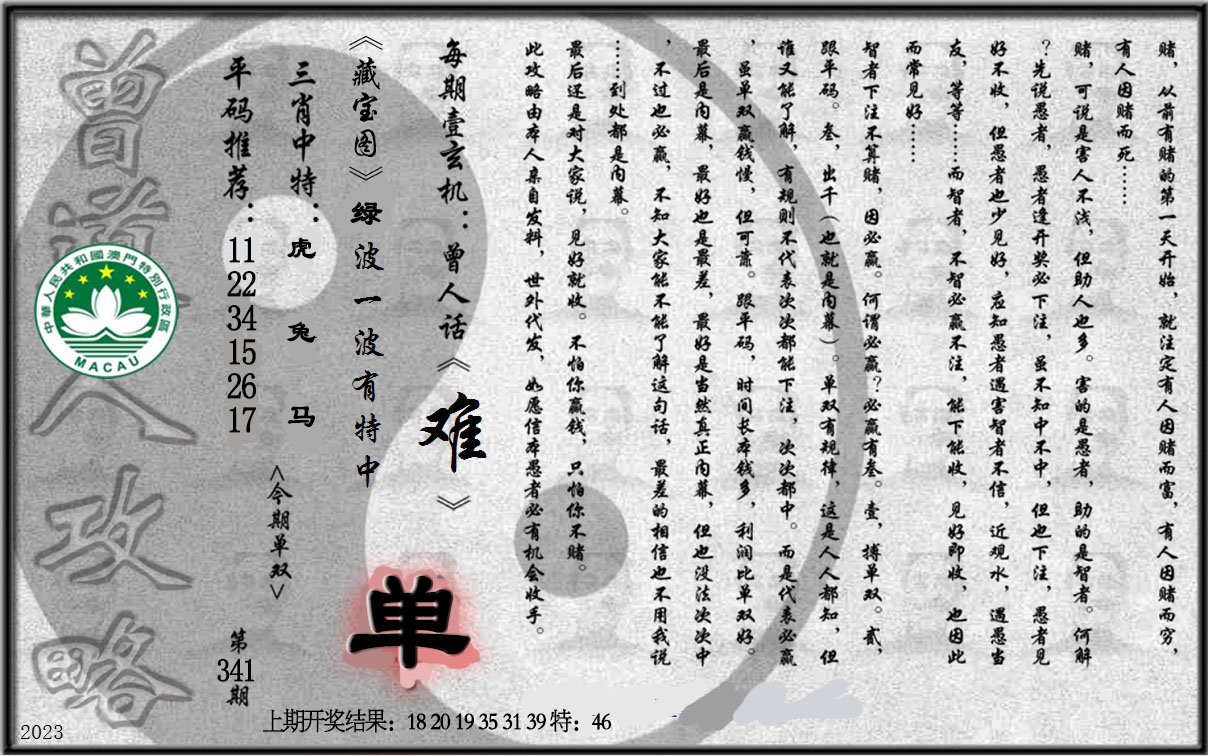 赌，从前有赌的第一天开始，就注定有人因赌而富，有人因赌而穷，
有人因赌而死……
赌，可说是害人不浅，但助人也多。害的是愚者，助的是智者。何解
？先说愚者，愚者逢开奖必下注，虽不知中不中，但也下注，愚者见
好不收，但愚者也少见好，应知愚者遇害智者不信，近观水，遇愚当
友，等等……而智者，不智必赢不注，能下能收，见好即收，也因此
而常见好……
智者下注不算赌，因必赢。何谓必赢？必赢有叁。壹，搏单双。贰，
跟平码。叁，出千（也就是内幕）。单双有规律，这是人人都知，但
谁又能了解，有规则不代表次次都能下注，次次都中。而是代表必赢
，虽单双赢钱慢，但可靠。跟平码，时间长本钱多，利润比单双好。
最后是内幕，最好也是最差，最好是当然真正内幕，但也没法次次中
，不过也必赢，不知大家能不能了解这句话，最差的相信也不用我说
……到处都是内幕。
最后还是对大家说，见好就收。不怕你赢钱，只怕你不赌。
此攻略由本人亲自发料，世外代发，如愿信本愚者必有机会收手。
每期壹玄机：曾人话《难》
《藏宝图》绿波一波有特中
单
三肖中特：虎 兔 马
<今期单双>
平码推荐：11 22 34 15 26 17
第341期
曾道人攻略
中華人民共和國澳門特別行政區
MACAU
上期开奖结果：18 20 19 35 31 39 特：46
2023